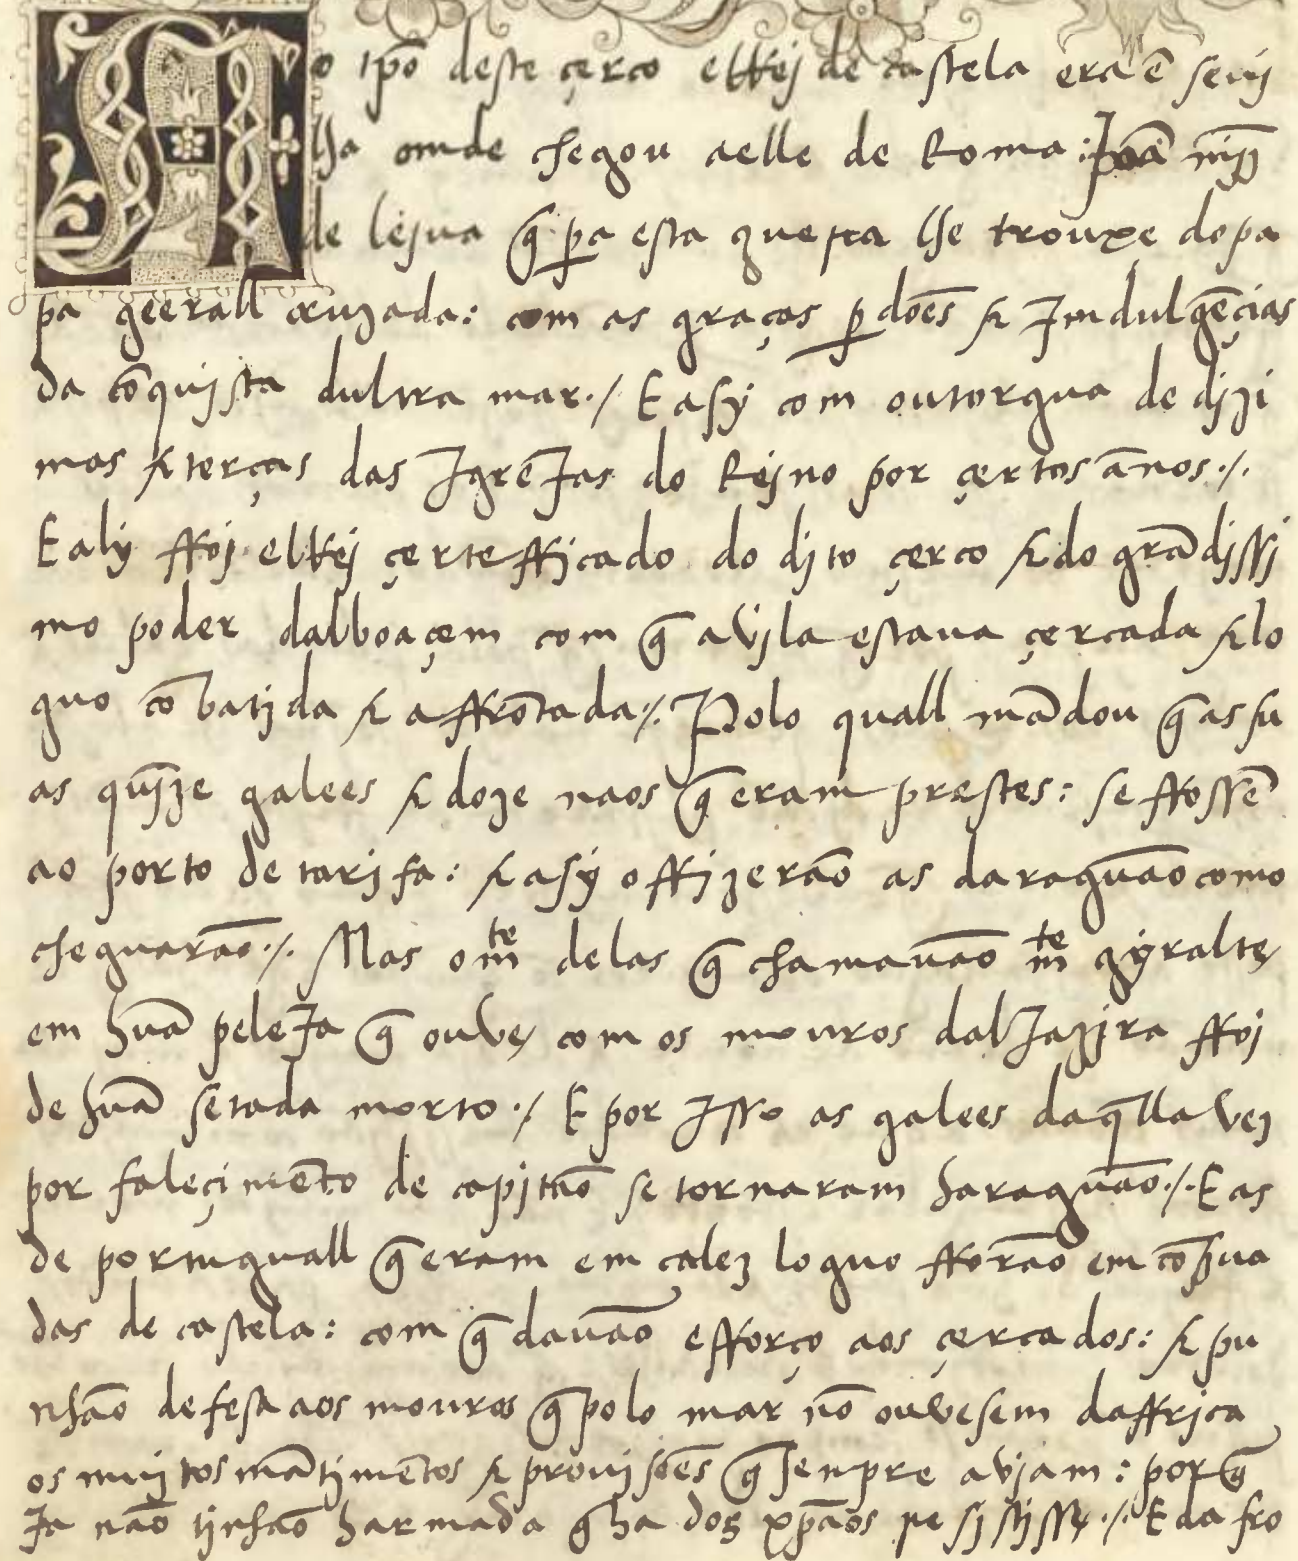 Ao tpõ deste çerco elRej de castela era ẽ sevj
lha omde chegou aelle de Roma: Joã
de lejva q̃ pa esta guerra lhe trouxe dopa
pa geerall cruzada: com as graças pdoẽs & Jmdulgẽçias
da cõquista dultra mar./ E asy com outorgua de dizi
mos & terças das JgreJas do Rejno por çertos ãnos./.
E aly ffoj elRej çerteffjcado do djto çerco & do grãdjssj
mo poder dalboaçem com q̃ avjla estaua çercada & lo
guo cõbatjda & affrõtada./. Polo quall mãdou q̃ as su
as qujze galees & doze naos q̃ eram prestes: se ffossẽ
ao porto de tarjfa: & asy offjzerão as daraguão como
cheguarão./. Mas o mte delas q̃ chamauão mte gyralte,
em hũa peleJa q̃ ouve, com os mouros dalJazjra ffoj
de hũa setada morto./ E por Jsso as galees daq̃lla vez
por faleçimẽto de capitaõ se tornaram haraguão./. E as
de portuguall q̃ eram em calez loguo fforão em cõpua
das de castela: com q̃ dauão efforço aos çercados: & pu
nhão defesa aos mouros q̃ polo mar nõ ouvesem daffrjca
os mujtos mãtjmẽtos & proujsoẽs q̃ senpre avjam: porq̃
Ja não tjnhão harmada q̃ ha dos xpãos resistisse./. E da fro